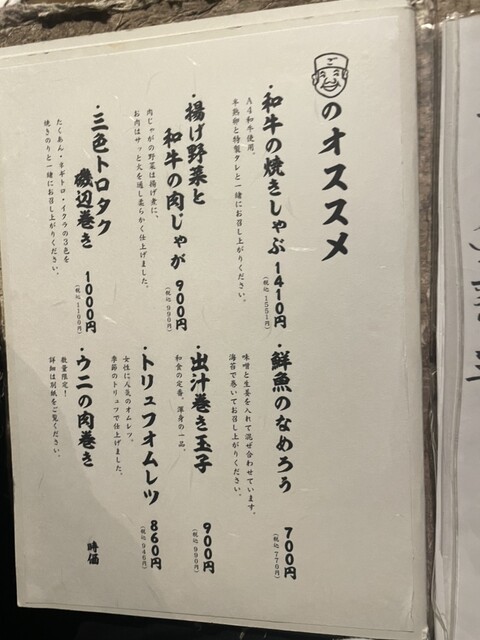 のオススメ
・和牛の焼きしゃぶ 1410円
(税込 1551円)
A4和牛使用。
半熟卵と特製タレと一緒にお召し上がりください。
・揚げ野菜と
和牛の肉じゃが 900円
(税込 990円)
肉じゃがの野菜は揚げ煮に、
お肉はサッと火を通し柔らかく仕上げました。
・三色トロタク
磯辺巻き 1000円
(税込 1100円)
たくあん・ネギトロ・イクラの3色を
焼きのりと一緒にお召し上がりください。
・鮮魚のなめろう 700円
(税込 770円)
味噌と生姜を入れて混ぜ合わせています。
海苔で巻いてお召し上がりください。
・出汁巻き玉子 900円
(税込 990円)
和食の定番。渾身の一品。
・トリュフオムレツ 860円
(税込 946円)
女性に人気のオムレツ。
季節のトリュフで仕上げました。
・ウニの肉巻き 時価
数量限定！
詳細は別紙をご覧ください。